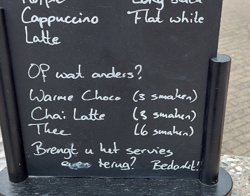 Long black
Cappuccino Flat white
Latte
Of wat anders?
Warme Choco (3 smaken)
Chai Latte (3 smaken)
Thee (6 smaken)
Brengt u het servies
even terug? Bedankt!